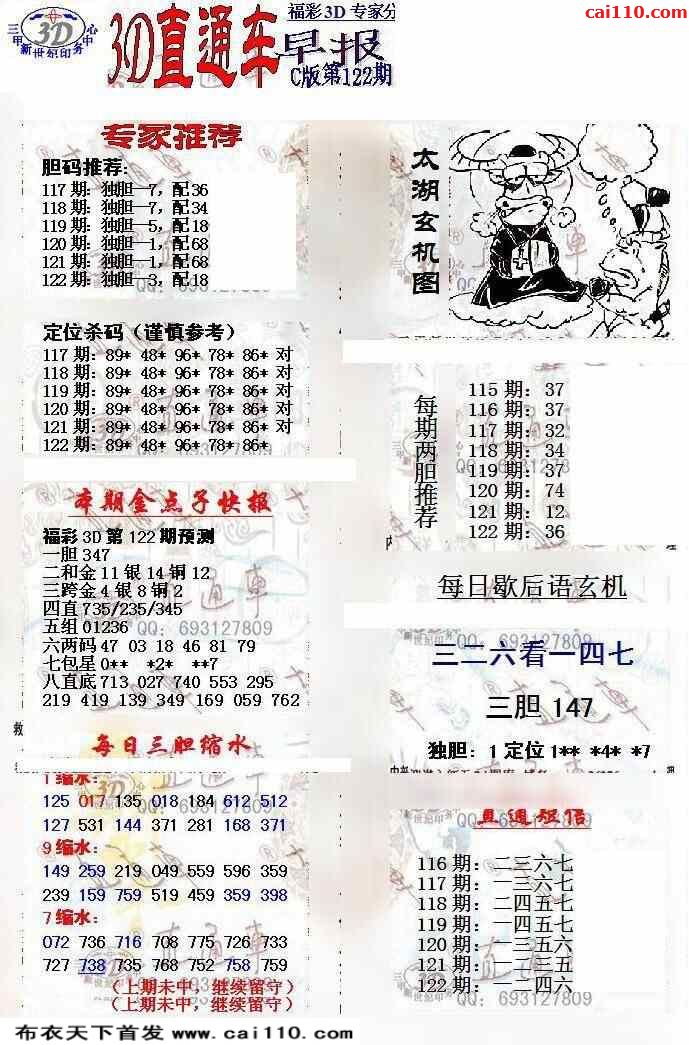 福彩3D 专家分
cai110.com
三甲 3D 心中
新世纪印务
3D直通车早报
C版第122期
专家推荐
胆码推荐:
117期: 独胆—7, 配36
118期: 独胆—7, 配34
119期: 独胆—5, 配18
120期: 独胆—1, 配68
121期: 独胆—1, 配68
122期: 独胆—3, 配18
QQ: 693127809
定位杀码（谨慎参考）
117期: 89* 48* 96* 78* 86* 对
118期: 89* 48* 96* 78* 86* 对
119期: 89* 48* 96* 78* 86* 对
120期: 89* 48* 96* 78* 86* 对
121期: 89* 48* 96* 78* 86* 对
122期: 89* 48* 96* 78* 86*
本期金点子快报
福彩3D第122期预测
一胆347
二和金11银14铜12
三跨金4银8铜2
四直735/235/345
五组01236
QQ: 693127809
六两码47 03 18 46 81 79
七包星0** *2* **7
八直底713 027 740 553 295
219 419 139 349 169 059 762
每日三胆缩水
1缩水:
125 017 135 018 184 612 512
127 531 144 371 281 168 371
9缩水:
149 259 219 049 559 596 359
239 159 759 519 459 359 398
7缩水:
072 736 716 708 775 726 733
727 738 735 768 752 758 759
（上期未中，继续留守）
（上期未中，继续留守）
太湖玄机图
每期两胆推荐
115期: 37
116期: 37
117期: 32
118期: 34
119期: 37
120期: 74
121期: 12
122期: 36
每日歇后语玄机
QQ: 693127809
三二六看一四七
三胆 147
独胆: 1 定位1** *4* *7
直通短信
116期: 二三六七
117期: 一三六七
118期: 二四五七
119期: 一四五七
120期: 一三五六
121期: 一二三五
122期: 一二四六
QQ: 693127809
布衣天下首发 www.cai110.com